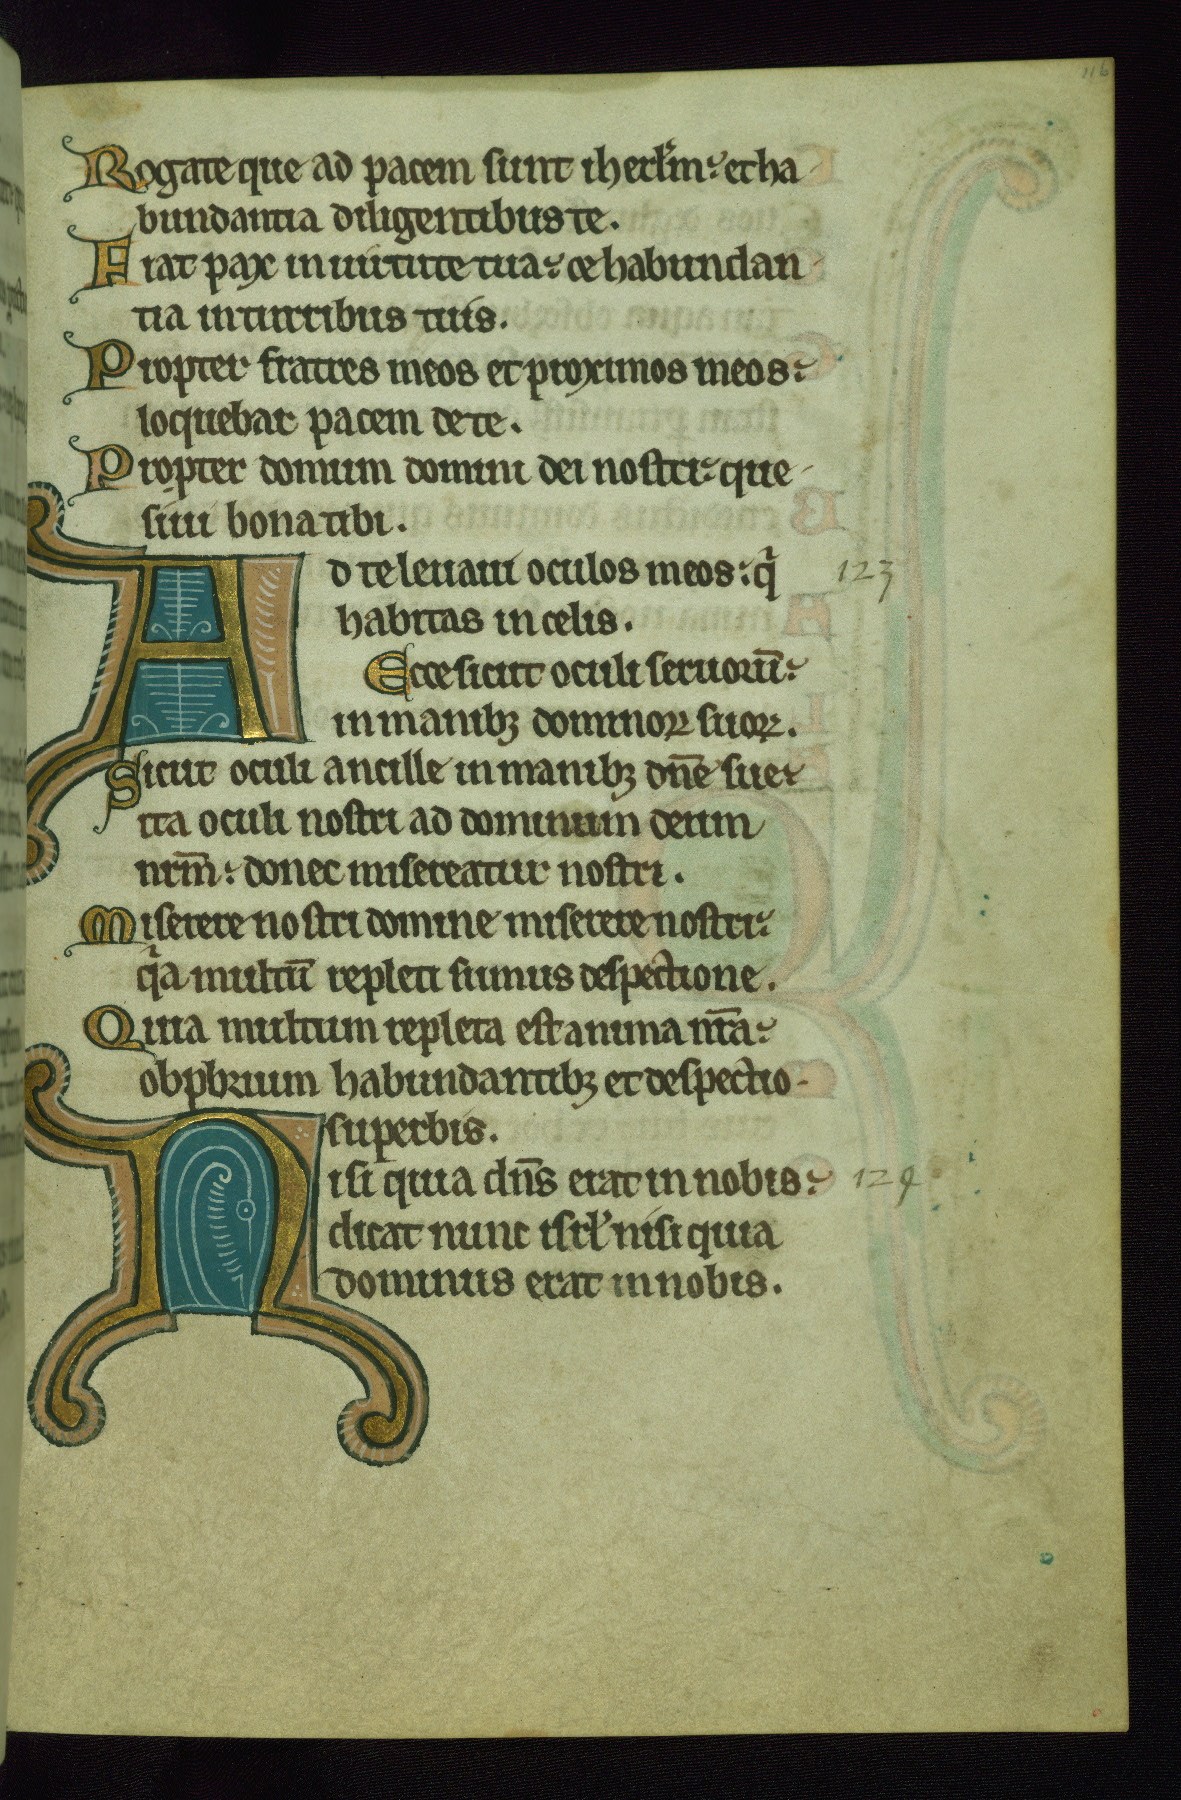 116
Rogate que ad pacem sunt iherl'm: et ha
bundantia diligentibus te.
Fiat pax in uirtute tua: et habundan
tia in turribus tuis.
Propter fratres meos et proximos meos:
loquebar pacem de te.
Propter domum domini dei nostri: que
siui bona tibi.
Ad te leuaui oculos meos: qi 123
habitas in celis.
Ecce sicut oculi seruorū:
in manibꝫ dominoꝝ suoꝝ.
Sicut oculi ancille in manibꝫ dn̄e sue:
ita oculi nostri ad dominum deum
nr̄m: donec misereatur nostri.
Miserere nostri domine miserere nostri:
qia multū repleti sumus despectione.
Quia multum repleta est anima nr̄a:
obpbrium habundantibꝫ et despectio-
superbis.
Nisi quia dn̄s erat in nobis: 124
dicat nunc isrl' nisi quia
dominus erat in nobis.